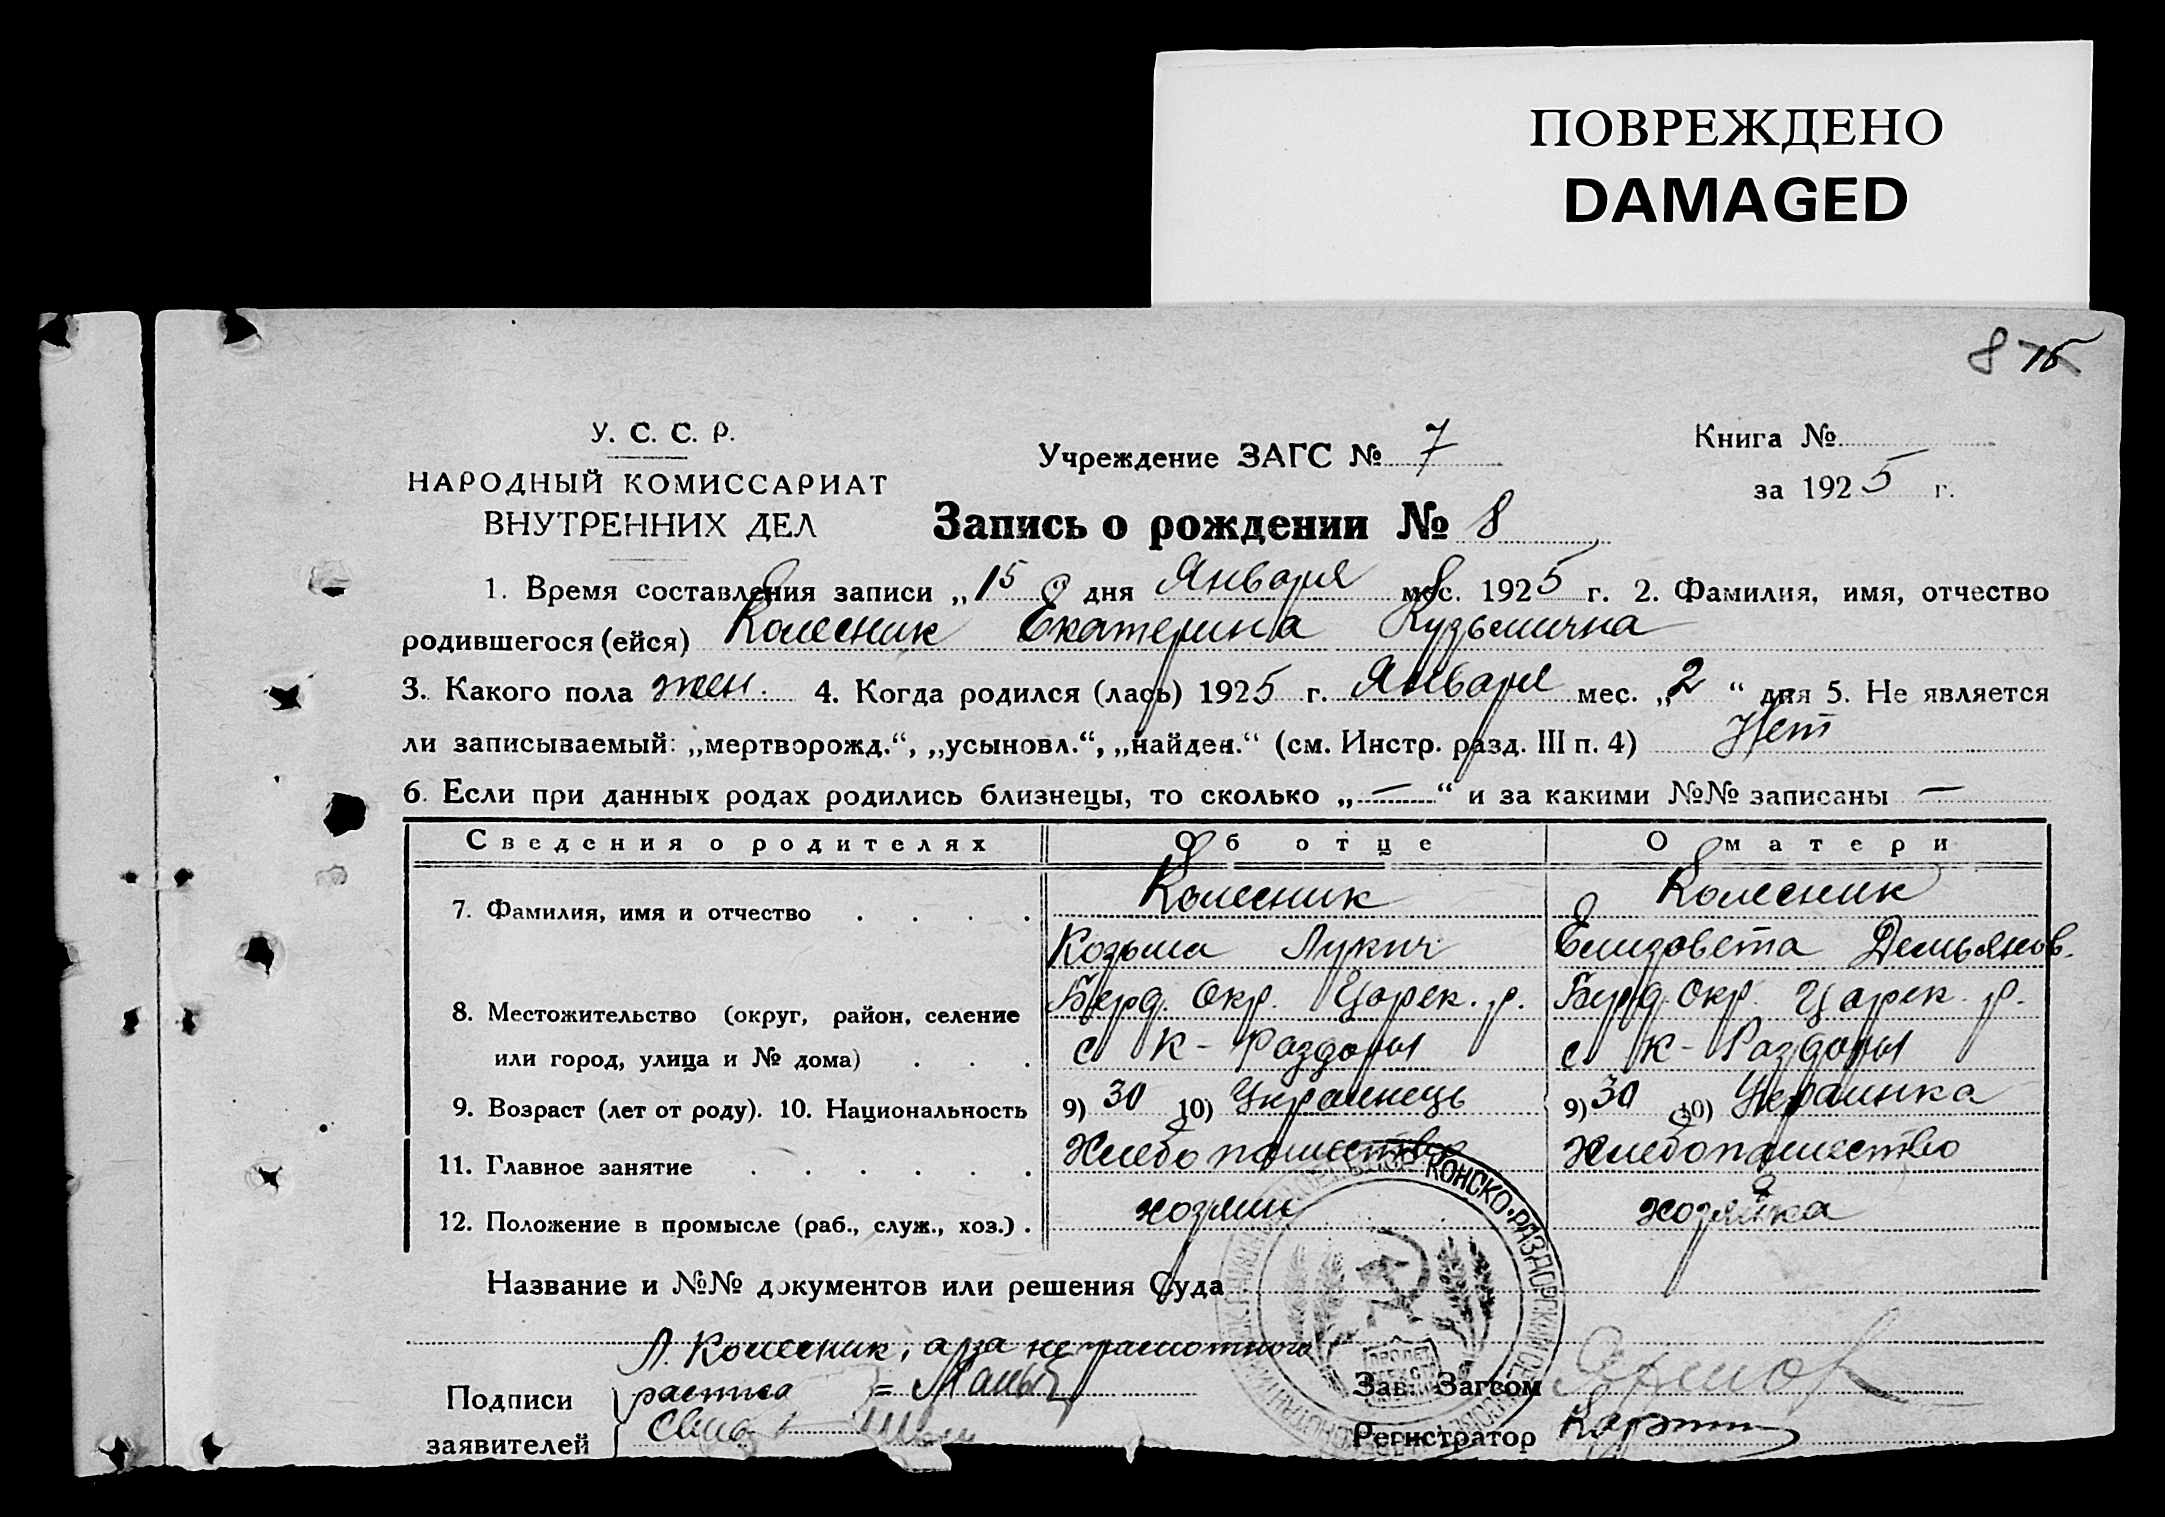 ПОВРЕЖДЕНО
DAMAGED
8
У. С. С. Р.
НАРОДНЫЙ КОМИССАРИАТ
ВНУТРЕННИХ ДЕЛ
Учреждение ЗАГС № 7
Книга №
за 1925 г.
Запись о рождении № 8
1. Время составления записи „15 дня Января мес. 1925 г. 2. Фамилия, имя, отчество
родившегося (ейся) Колесник Екатерина Кузьмична
3. Какого пола жен. 4. Когда родился (лась) 1925 г. Января мес. „2 “ дня 5. Не является
ли записываемый: „мертворожд.“, „усыновл.“, „найден.“ (см. Инстр. разд. III п. 4) Нет
6. Если при данных родах родились близнецы, то сколько „—“ и за какими №№ записаны —
Сведения о родителях Об отце О матери
7. Фамилия, имя и отчество Колесник Колесник
Козьма Лукич Елизовета Демьянов.
8. Местожительство (округ, район, селение Берд. Окр. Царек. р. Берд. Окр. Царек. р.
или город, улица и № дома) с К-Раздоры с К-Раздоры
9. Возраст (лет от роду). 10. Национальность 9) 30 10) Украинець 9) 30 10) Украинка
11. Главное занятие Хлебопашество Хлебопашество
12. Положение в промысле (раб., служ., хоз.) хозяин хозяйка
Название и №№ документов или решения Суда
Л. Колесник, а за неграмотного
Подписи
заявителей
КОНСКО-РАЗДОРСКИЙ
Зав. Загсом
Регистратор